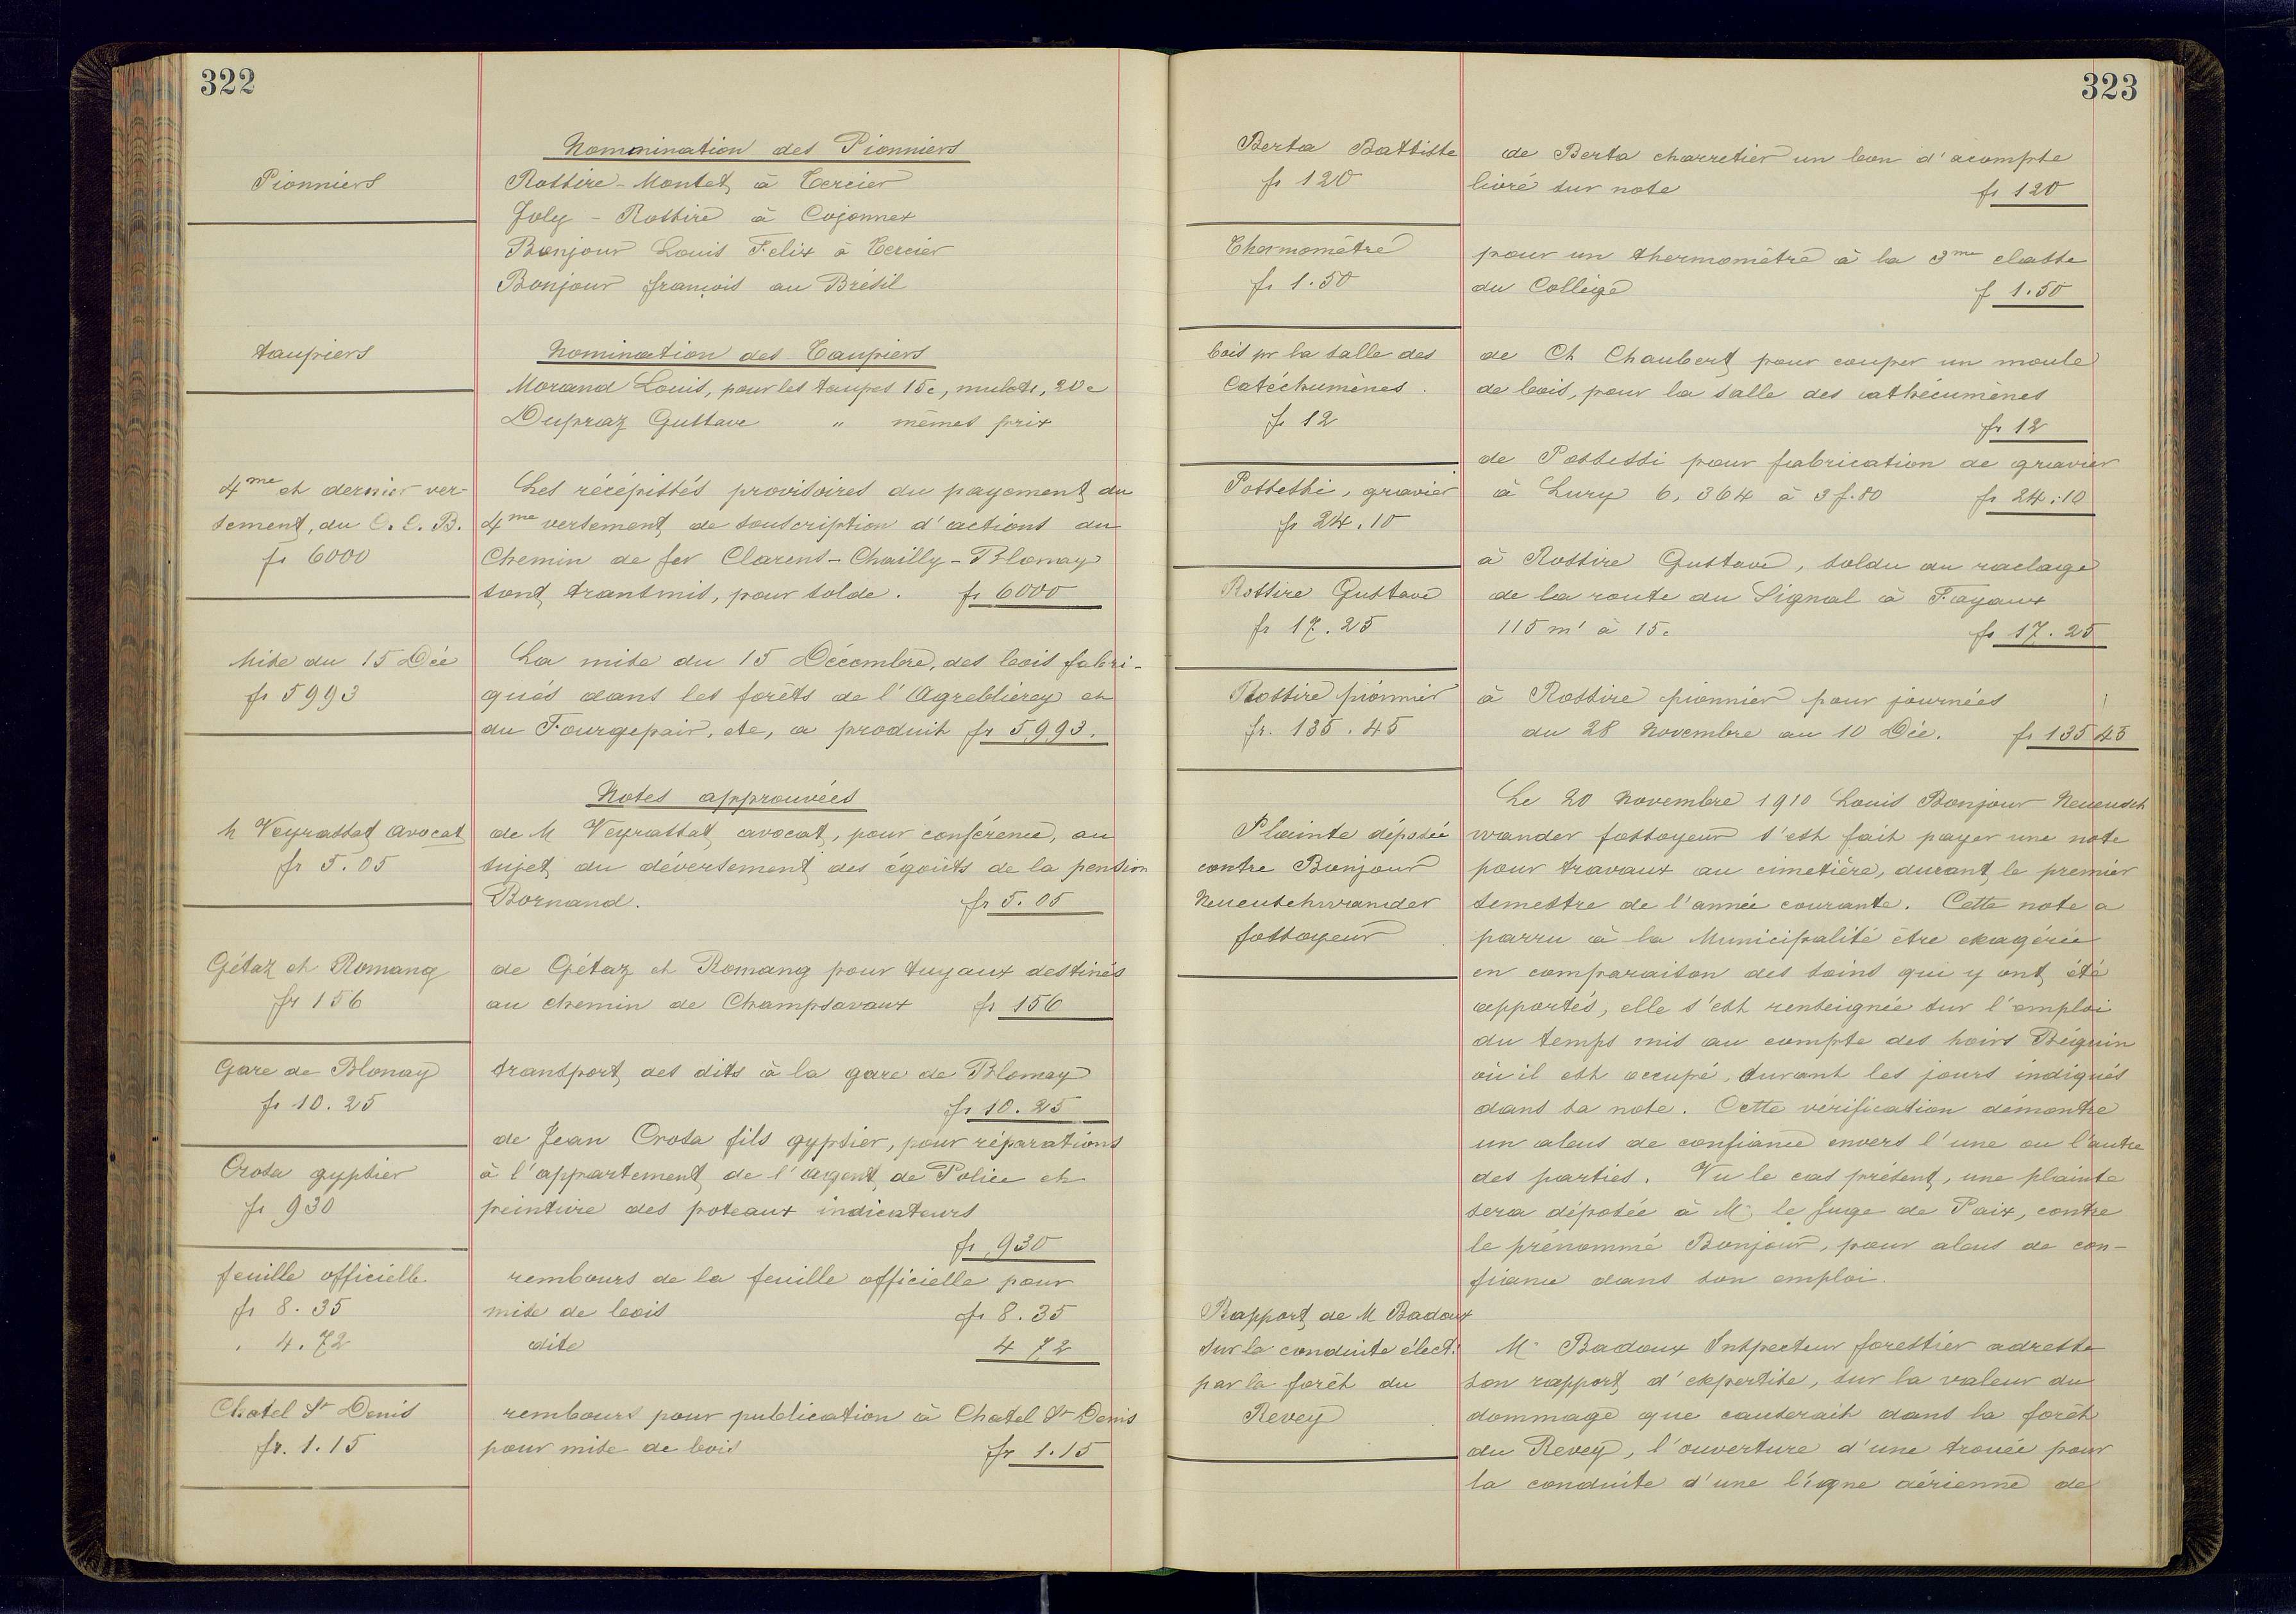 322
Nommination des Pionniers
Pionniers
Rossire - Montet à Tercier
Joly - Rossire à Cojonnex
Bonjour Louis Felix à Tercier
Bonjour françois au Brésil
taupiers
Nomination des Taupiers
Morand Louis, pour les taupes 15c, mulots, 20c
Dupraz Gustave " mêmes prix
4me et dernier ver-
sement, du C. C. B.
fr 6000
Les récépissés provisoires du payement du
4me versement de souscription d'actions du
Chemin de fer Clarens - Chailly - Blonay
sont transmis, pour solde. fr 6000
Mise du 15 Déc
fr 5993
La mise du 15 Décembre, des bois fabri-
qués dans les forêts de l'Agreblierey et
du Fourgepair, etc, a produit fr 5993.
Notes approuvées
M Veyrassat avocat
fr 5.05
de M Veyrassat avocat, pour conférence, au
sujet du déversement des égoûts de la pension
Bornand. fr 5.05
Gétaz et Romang
fr 156
de Gétaz et Romang pour tuyaux destinés
au chemin de Champsavaux fr 156
Gare de Blonay
fr 10.25
transport des dits à la gare de Blonay
fr 10.25
Crosa gyptier
fr 930
de Jean Crosa fils gyptier, pour réparations
à l'appartement de l'agent de Police et
peinture des poteaux indicateurs
fr 930
feuille officielle
fr 8.35
" 4.72
rembours de la feuille officielle pour
mise de bois fr 8.35
dite 4 72
Chatel St Denis
fr. 1.15
rembours pour publication à Chatel St Denis
pour mise de bois fr 1.15
323
Berta Battiste
fr 120
de Berta charretier un bon d'acompte
livré sur note fr 120
Thermomètre
fr 1.50
pour un thermomètre à la 3me classe
du Collège f 1.50
bois pr la salle des
Catéchumènes.
fr 12
de Ch Chaubert pour couper un moule
de bois, pour la salle des cathécumènes
fr 12
Possessi, gravier
fr 24.10
de Possessi pour fabrication de gravier
à Lury 6,364 à 3f.80 fr 24.10
Rossire Gustave
fr 17.25
à Rossire Gustave, soldu du raclage
de la route du Signal à Fayaux
115 m' à 15c fr 17.25
Rossire pionnier
fr. 135.45
à Rossire pionnier pour journées
du 28 Novembre au 10 Déc. fr 135 45
Plainte déposée
contre Bonjour
Neuenschwander
fossoyeur
Le 20 Novembre 1910 Louis Bonjour Neuensch
wander fossoyeur s'est fait payer une note
pour travaux au cimetière, durant le premier
semestre de l'année courante. Cette note a
parru à la Municipalité être exagérée
en comparaison des soins qui y ont été
apportés, elle s'est renseignée sur l'emploi
du temps mis au compte des hoirs Béguin
où il est occupé, durant les jours indiqués
dans sa note. Cette vérification démontre
un abus de confiance envers l'une ou l'autre
des parties. Vu le cas présent, une plainte
sera déposée à M. le Juge de Paix, contre
le prénommé Bonjour, pour abus de con-
fiance dans son emploi.
Rapport de M Badoux
sur la conduite élect.
par la forêt du
Revey
M. Badoux Inspecteur forestier adresse
son rapport d'expertise, sur la valeur du
dommage que causerait dans la forêt
du Revey, l'ouverture d'une trouée pour
la conduite d'une ligne aérienne de